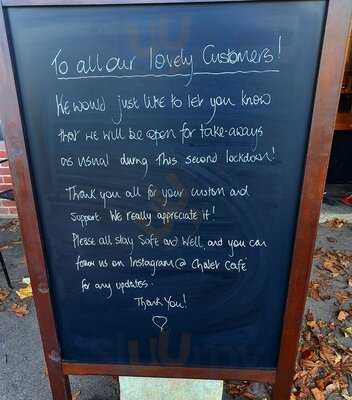 To all our lovely Customers!
We would just like to let you know
that we will be open for take-aways
as usual during this second lockdown!
Thank you all for your custom and
support. We really appreciate it!
Please all stay Safe and Well, and you can
follow us on Instagram @ Chalet Café
for any updates.
Thank You!